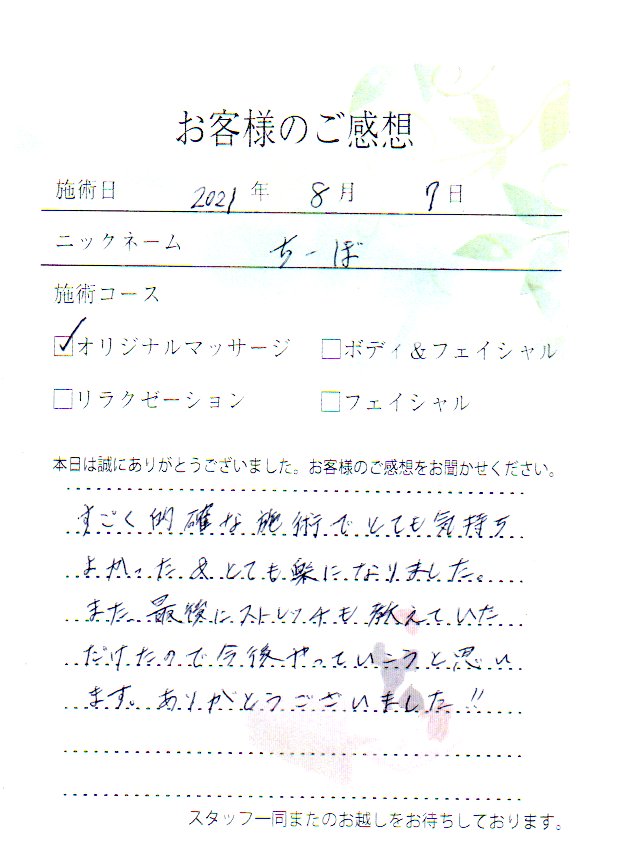 お客様のご感想
施術日 2021年 8月 7日
ニックネーム ちーぼ
施術コース
☑オリジナルマッサージ □ボディ＆フェイシャル
□リラクゼーション □フェイシャル
本日は誠にありがとうございました。お客様のご感想をお聞かせください。
すごく的確な施術でとても気持ち
よかった&とても楽になりました。
また最後にストレッチも教えていた
だけたので今後やっていこうと思い
ます。ありがとうございました!!
スタッフ一同またのお越しをお待ちしております。